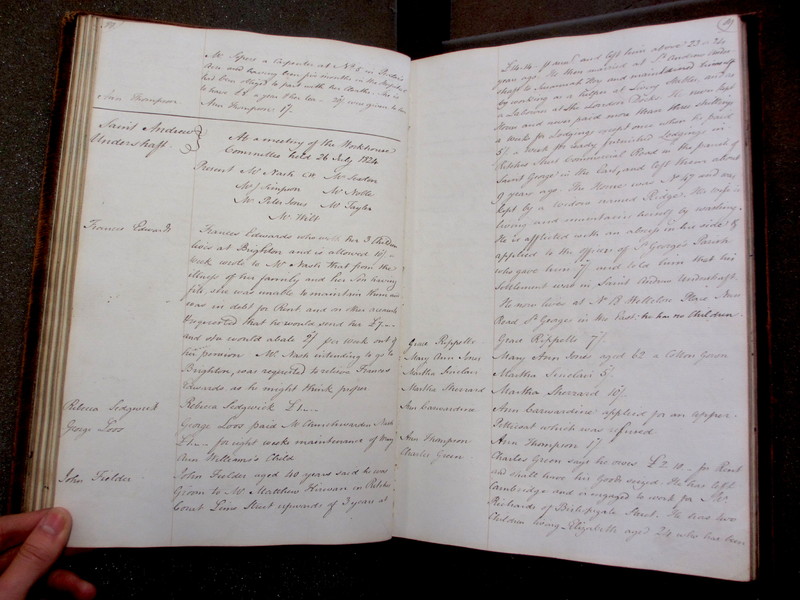 Mr. Sopers a Carpenter at No. 5 in
Row and having been six months in the Hospital
has been obliged to part with his Cloaths. He is
to have £ a year
Ann Thompson
Ann Thompson 1/.
Saint Andrew
Undershaft.
At a meeting of the Workhouse
Committee held 26 July 1824
Present Mr. Nash CW Mr. Sexton
Mr. J Simpson Mr. Nolte
Mr. Peter Jones Mr. Taylor
Mr. Wilt
Francis Edwards
Frances Edwards who with her 3 Children
lives at Brighton and is allowed 10/-
week wrote to Mr. Nash that from the
illness of her family and her Son having
fits, she was unable to maintain them and
was in debt for Rent and on other accounts
& requested that he would send her £7,,-
and she would abate 2/ per week out of
her pension Mr. Nash intending to go to
Brighton, was requested to relieve Frances
Edwards as he might think proper
Rebecca Sedgwick
Rebecca Sedgwick £1,,-
George Loos
George Loos paid Mr. Churchwarden Nash
£1,,- for eight weeks maintenance of Mary
Ann Williams's Child
John Fielder
John Fielder aged 40 years said he was
Groom to Mr. Matthew in Ritches
Court Lime Street upwards of 3 years at
£14.14- Annm. and left him about 23 or 24
years ago. He then married at St. Andrew Under-
shaft to Savannah Hoy and maintained himself
by working as a helper at Livery Stables, and as
a Laborer at the London Docks. He never kept
House and never paid more than three shillings
a week for Lodgings except once when he paid
5/ a week for ready furnished Lodgings in
Ratcliffe Street Commercial Road in the parish of
Saint George in the East, and left them about
9 years ago. The House was No. 47 and was
kept by a widow named Ridge. His wife is
living and maintains herself by washing.
He is afflicted with an abscess in his side &
applied to the officers of St. George's Parish
who gave him 7/ and told him that his
Settlement was in Saint Andrew Undershaft.
He now lives at No. 13 Place New
Road St. Georges in the East: he has no Children.
Grace Rippette
Grace Rippette 7/.
Mary Ann Jones
Mary Ann Jones aged 62 a Cotton Gown
Martha Sinclair
Martha Sinclair 5/.
Martha Sherrard
Martha Sherrard 10/.
Ann Carwardine
Ann Carwardine applied for an upper
Petticoat which was refused
Ann Thompson
Ann Thompson 1/
Charles Green
Charles Green says he owes £2.10- for Rent
and shall have his Goods seized. He has left
Cambridge and is engaged to work for Mr.
Richards of Bishopsgate Street. He has two
Children living Elizabeth aged 24 who has been